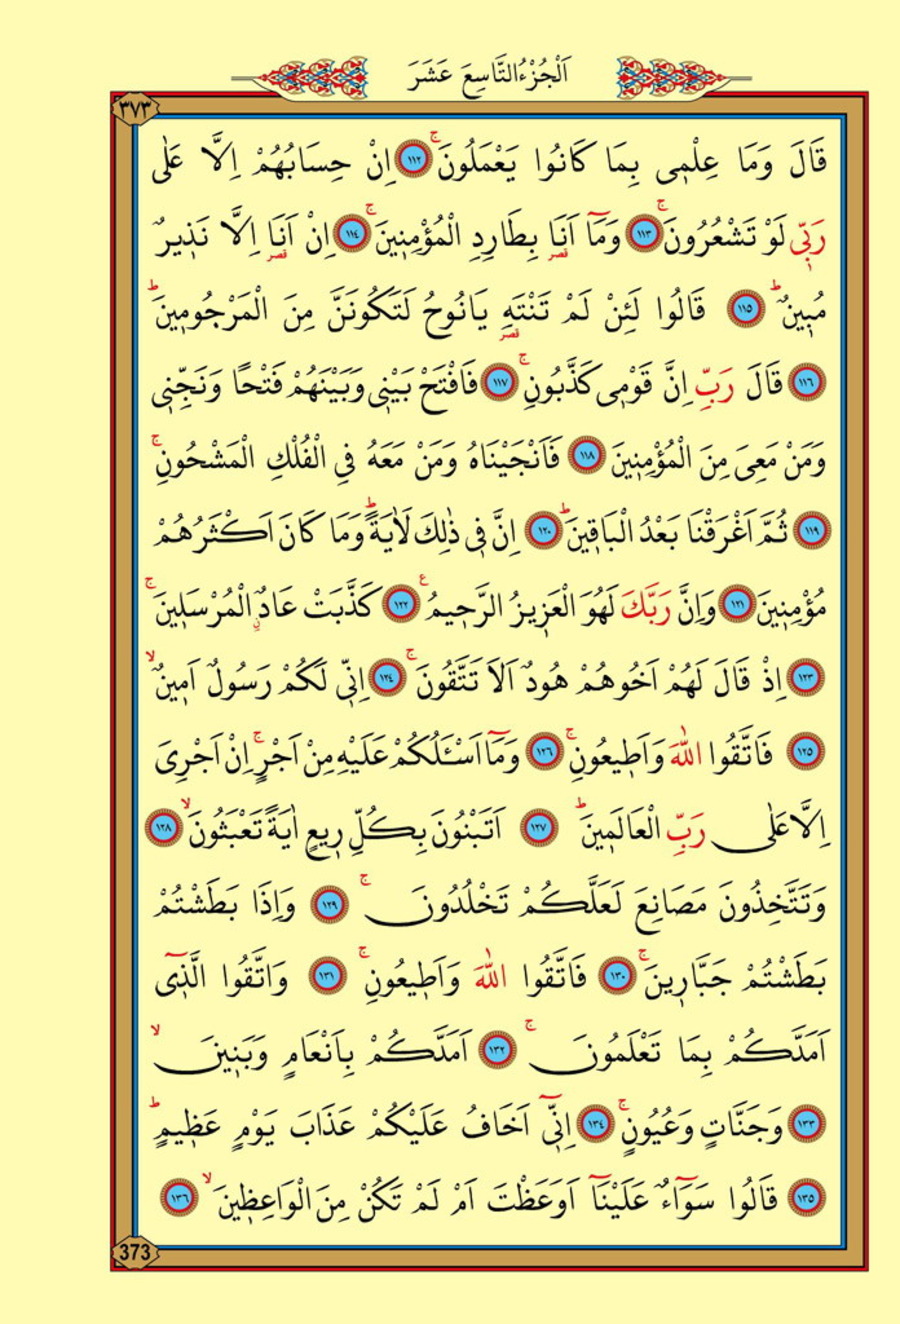 اَلْجُزْءُالتَّاسِعَ عَشَرَ
٣٧٣
قَالَ وَمَا عِلْمٖى بِمَا كَانُوا يَعْمَلُونَۚ ﴿١١٢﴾ اِنْ حِسَابُهُمْ اِلَّا عَلٰى
رَبّٖى لَوْ تَشْعُرُونَۚ ﴿١١٣﴾ وَمَٓا اَنَا۬ بِطَارِدِ الْمُؤْمِنٖينَۚ ﴿١١٤﴾ اِنْ اَنَا۬ اِلَّا نَذٖيرٌ
قصر قصر
مُبٖينٌۜ ﴿١١٥﴾ قَالُوا لَئِنْ لَمْ تَنْتَهِ يَانُوحُ لَتَكُونَنَّ مِنَ الْمَرْجُومٖينَۜ
قصر
﴿١١٦﴾ قَالَ رَبِّ اِنَّ قَوْمٖى كَذَّبُونِۚ ﴿١١٧﴾ فَافْتَحْ بَيْنٖى وَبَيْنَهُمْ فَتْحًا وَنَجِّنٖى
وَمَنْ مَعِىَ مِنَ الْمُؤْمِنٖينَ ﴿١١٨﴾ فَاَنْجَيْنَاهُ وَمَنْ مَعَهُ فِى الْفُلْكِ الْمَشْحُونِۚ
﴿١١٩﴾ ثُمَّ اَغْرَقْنَا بَعْدُ الْبَاقٖينَۜ ﴿١٢٠﴾ اِنَّ فٖى ذٰلِكَ لَاٰيَةًۜ وَمَا كَانَ اَكْثَرُهُمْ
مُؤْمِنٖينَ ﴿١٢١﴾ وَاِنَّ رَبَّكَ لَهُوَ الْعَزٖيزُ الرَّحٖيمُ ع ﴿١٢٢﴾ كَذَّبَتْ عَادٌۨ الْمُرْسَلٖينَۚ
﴿١٢٣﴾ اِذْ قَالَ لَهُمْ اَخُوهُمْ هُودٌ اَلَا تَتَّقُونَۚ ﴿١٢٤﴾ اِنّٖى لَكُمْ رَسُولٌ اَمٖينٌۙ
﴿١٢٥﴾ فَاتَّقُوا اللّٰهَ وَاَطٖيعُونِۚ ﴿١٢٦﴾ وَمَٓا اَسْـَٔلُكُمْ عَلَيْهِ مِنْ اَجْرٍۚ اِنْ اَجْرِىَ
اِلَّا عَلٰى رَبِّ الْعَالَمٖينَۜ ﴿١٢٧﴾ اَتَبْنُونَ بِكُلِّ رٖيعٍ اٰيَةً تَعْبَثُونَۙ ﴿١٢٨﴾
وَتَتَّخِذُونَ مَصَانِعَ لَعَلَّكُمْ تَخْلُدُونَۚ ﴿١٢٩﴾ وَاِذَا بَطَشْتُمْ
بَطَشْتُمْ جَبَّارٖينَۚ ﴿١٣٠﴾ فَاتَّقُوا اللّٰهَ وَاَطٖيعُونِۚ ﴿١٣١﴾ وَاتَّقُوا الَّذٖٓى
اَمَدَّكُمْ بِمَا تَعْلَمُونَۚ ﴿١٣٢﴾ اَمَدَّكُمْ بِاَنْعَامٍ وَبَنٖينَۙ
﴿١٣٣﴾ وَجَنَّاتٍ وَعُيُونٍۚ ﴿١٣٤﴾ اِنّٖٓى اَخَافُ عَلَيْكُمْ عَذَابَ يَوْمٍ عَظٖيمٍۜ
﴿١٣٥﴾ قَالُوا سَوَٓاءٌ عَلَيْنَٓا اَوَعَظْتَ اَمْ لَمْ تَكُنْ مِنَ الْوَاعِظٖينَۙ ﴿١٣٦﴾
373